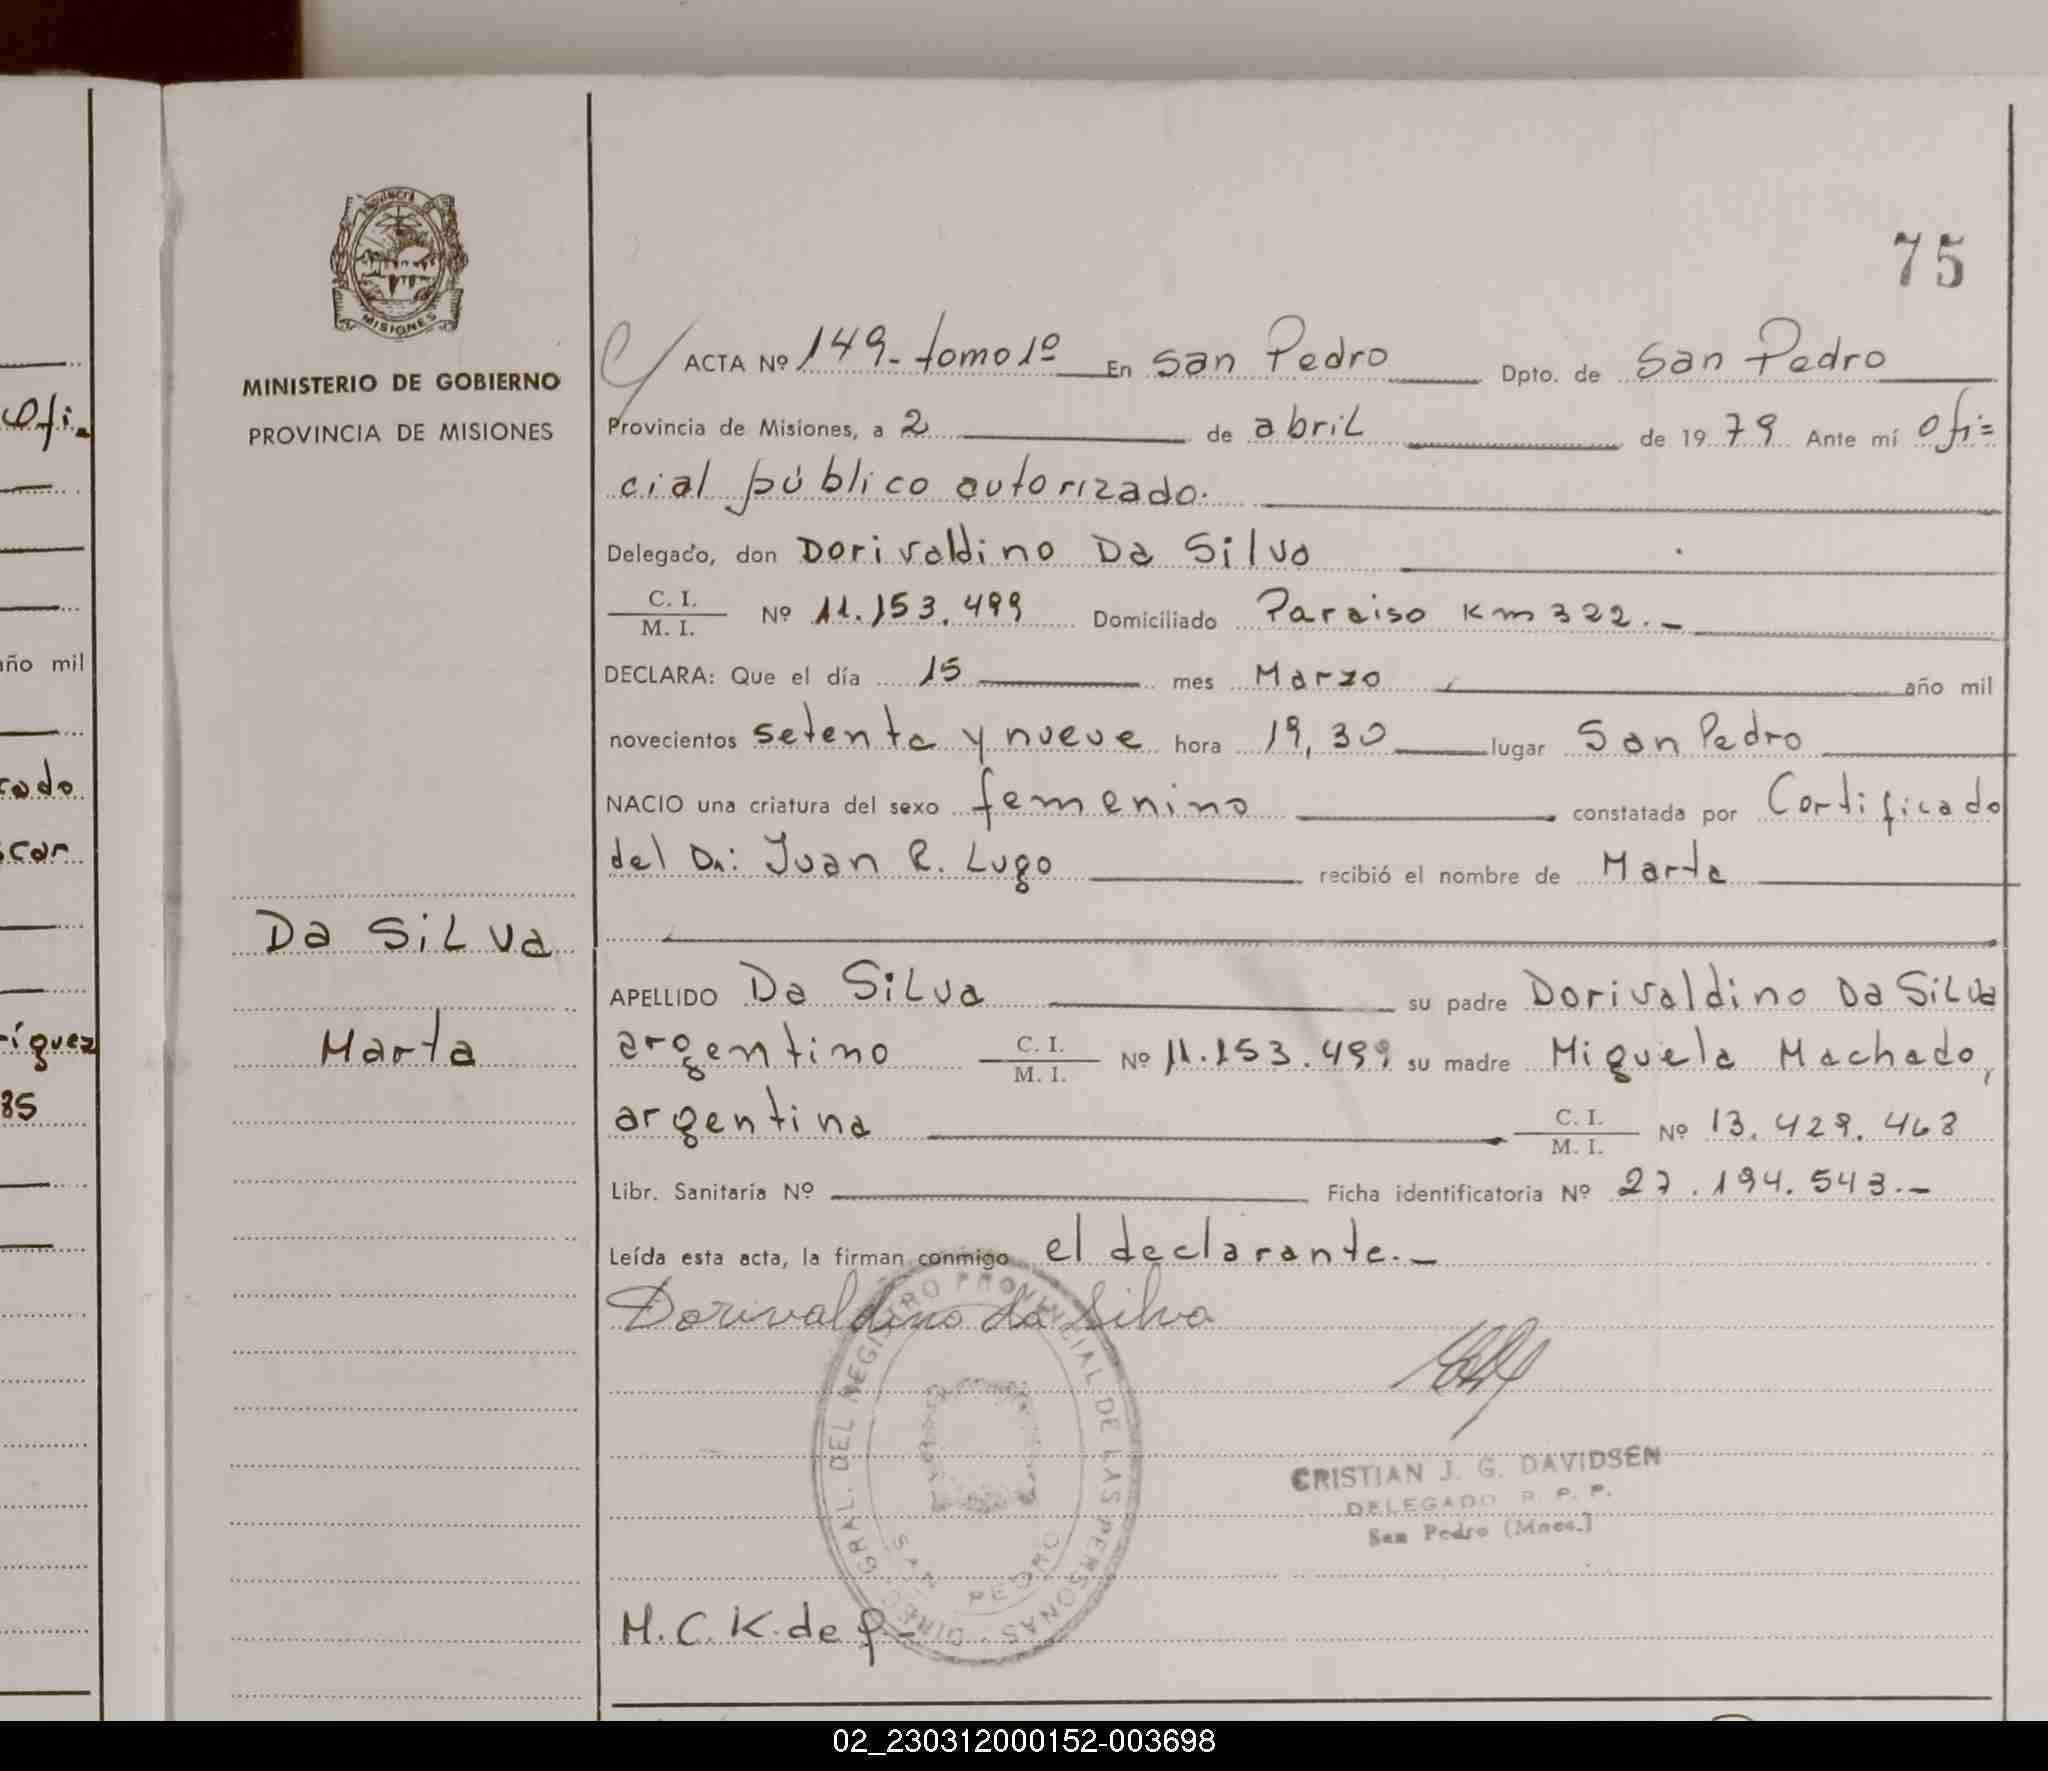 75
MINISTERIO DE GOBIERNO
PROVINCIA DE MISIONES
MISIONES
ACTA Nº 149.- tomo 1º En San Pedro Dpto. de San Pedro
Provincia de Misiones, a 2 de abril de 1979 Ante mí Ofi=
cial público autorizado.
Delegado, don Dorivaldino Da Silva
C. I.
M. I. Nº 11.153.499 Domiciliado Paraiso Km 322.-
DECLARA: Que el día 15 mes Marzo año mil
novecientos setenta y nueve hora 19,30 lugar San Pedro
NACIO una criatura del sexo femenino constatada por Certificado
del Dr: Juan R. Lugo recibió el nombre de Marta
Da Silva
Marta
APELLIDO Da Silva su padre Dorivaldino Da Silva
argentino C. I. M. I. Nº 11.153.499 su madre Miguela Machado,
argentina C. I. M. I. Nº 13.429.468
Libr. Sanitaria Nº Ficha identificatoria Nº 27.194.543.-
Leída esta acta, la firman conmigo el declarante.-
Dorivaldino da Silva
DIREC. GRAL. DEL REGISTRO PROVINCIAL DE LAS PERSONAS
SAN PEDRO
CRISTIAN J. G. DAVIDSEN
DELEGADO R. P. P.
San Pedro (Mnes.)
M. C. K. de
Ofi-
año mil
ríguez
85
02_230312000152-003698